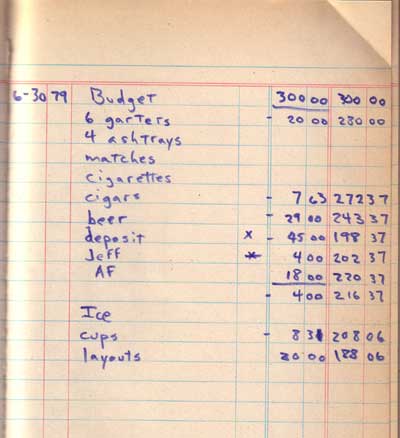 6-30 79 Budget 300 00 300 00
6 garters - 20 00 280 00
4 ashtrays
matches
cigarettes
cigars - 7 63 272 37
beer - 29 00 243 37
deposit x - 45 00 198 37
Jeff * 4 00 202 37
AF 18 00 220 37
- 4 00 216 37
Ice
cups - 8 31 208 06
layouts 20 00 188 06